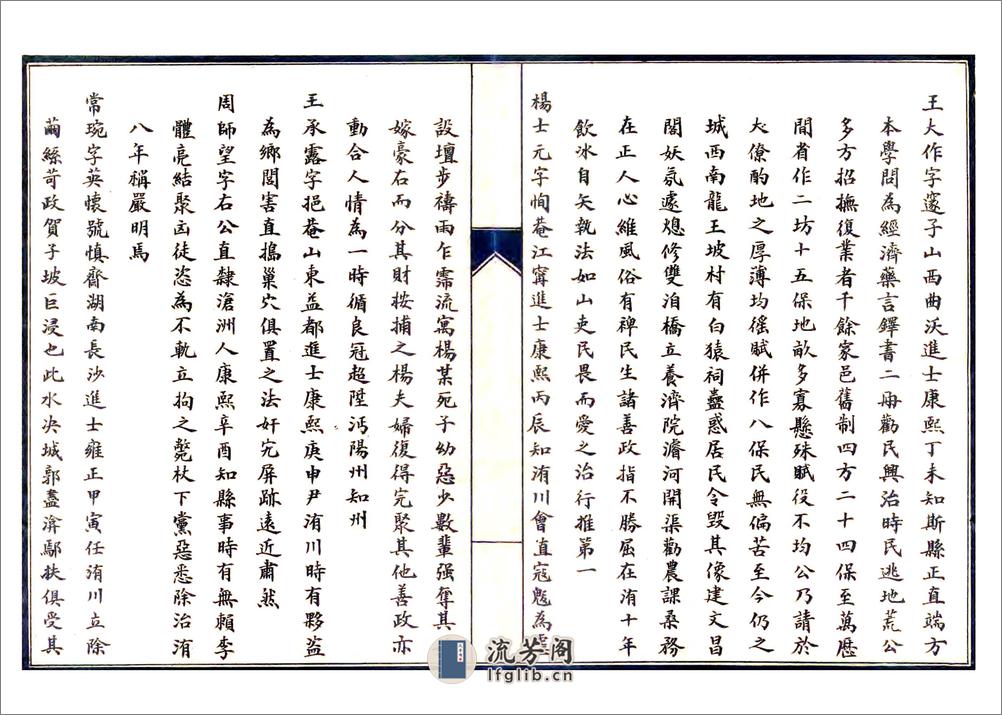 王大作字邃子山西曲沃進士康熙丁未知斯縣正直端方
本學問為經濟藥言鐸書二冊勸民興治時民逃地荒公
多方招撫復業者千餘家邑舊制四方二十四保至萬歷
間省作二坊十五保地畝多寡懸殊賦役不均公乃請於
大僚酌地之厚薄均徭賦併作八保民無偏苦至今仍之
城西南龍王坡村有白猿祠蠱惑居民令毀其像建文昌
閣妖氛遽熄修雙洎橋立養濟院濬河開渠勸農課桑務
在正人心維風俗有裨民生諸善政指不勝屈在洧十年
飲冰自矢執法如山吏民畏而愛之治行推第一
楊士元字恂菴江寧進士康熙丙辰知洧川會直寇魃為虐
設壇步禱雨乍霈流寓楊某死子幼惡少數輩强奪其
嫁豪右而分其財按捕之楊夫婦復得完聚其他善政亦
動合人情為一時循良冠超陞沔陽州知州
王承露字挹菴山東益都進士康熙庚申尹洧川時有夥盜
為鄉閭害直搗巢穴俱置之法奸宄屏跡遠近肅然
周師望字右公直隸滄洲人康熙辛酉知縣事時有無賴李
體亮結聚凶徒恣為不軌立拘之斃杖下黨惡悉除治洧
八年稱嚴明焉
常琬字英懷號慎齋湖南長沙進士雍正甲寅任洧川立除
繭絲苛政賀子坡巨浸也此水決城郭盡渰鄢扶俱受其
流芳阁
lfglib.cn